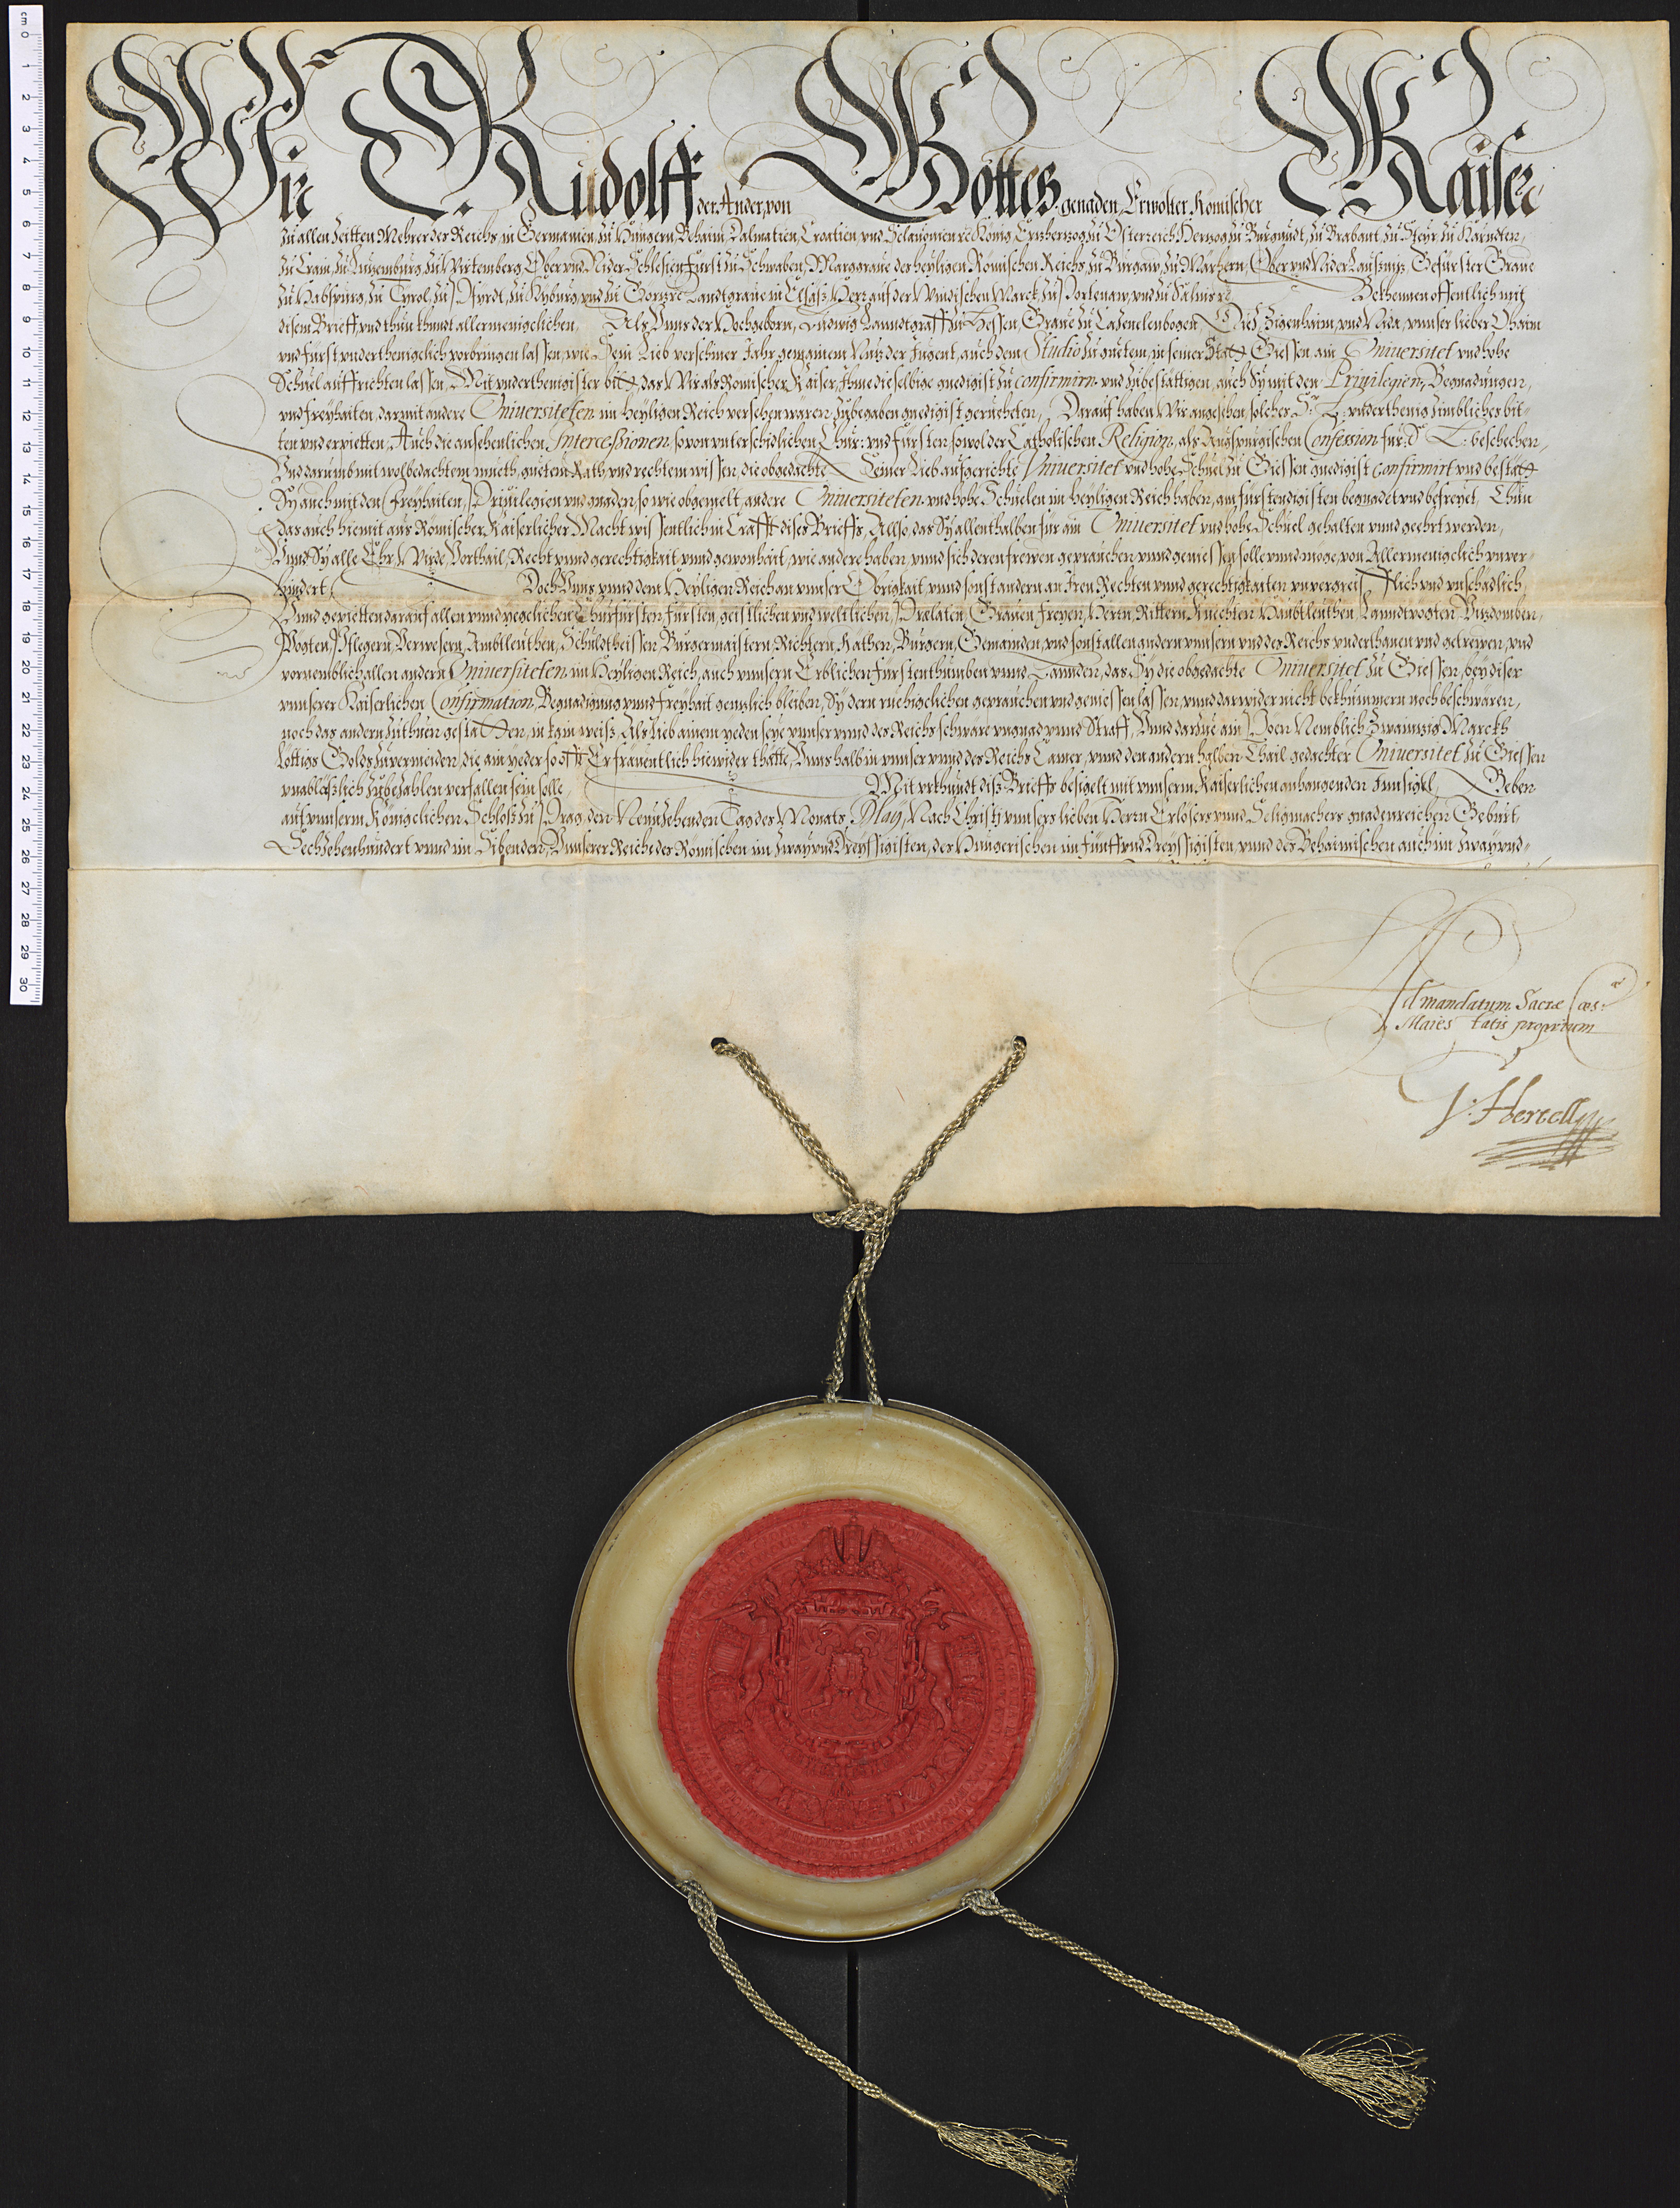 Wir Rudolff der Ander, von Gottes genaden, Erwölter Römischer Kaiser,
Zu allen Zeitten Mehrer des Reichs, in Germanien, zu Hungern, Behaim, Dalmatien, Croatien, vnd Sclauonien ec König, Ertzherzog zu Österreich, Herzog zu Burgundt, zu Brabant, zu Steyr, zu Kärndten,
zu Crain, zu Lutzemburg, zu Wirtemberg, Ober vnd Nider Schlesien, Fürst zu Schwaben, Marggraue des heyligen Römischen Reichs, zu Burgaw, zu Märhern, Ober vnd Nider Laußnitz, Gefürster Graue
zu Habspurg, zu Tyrol, zu Pfyrdt, zu Kyburg, vnd zu Görtz ec Landtgraue in Elsäsz, Herr auf der Windischen Marck, zu Portenaw, vnd zu Salins ec Bekhennen offentlich mit
disem Brieff, vnd thun khundt allermenigelichen, Als Vnns der Hochgeborn, Ludwig Lanndtgraff zu Hessen, Graue zu Cazenelenbogen, Diez, Zigenhaim, vnd Nida, vnnser lieber Ohaim
vnd Fürst vnderthenigelich vorbringen lassen, wie Sein Lieb verschiner Jahr, gemainem Nutz der Jugent, auch dem Studio zu guetem, in seiner Statt Giessen, ain Vniuersitet vnd hohe
Schuel auffrichten lassen, Mit vnderthenigister bitt, das Wir als Römischer Kaiser, Ihme dieselbige gnedigist zu confirmirn vnd zubestättigen, auch Sy mit den Priuilegien, Begnadungen,
vnd freyhaiten, darmit andere Vniuersiteten im heyligen Reich versehen wären zubegaben gnedigist geruecheten, Darauf haben Wir angesehen, solches Sr. L: vnderthenig zimbliches bit-
ten vnd erpietten, Auch die ansehenlichen Intercessionen, so von vnterschidlichen Chur: vnd Fürsten, sowol der Catholischen Religion, als Augspurgischen Confession für Sr L: beschechen,
Vnd darumb mit wolbedachtem mueth, guetem Rath, vnd rechtem wissen, die obgedachte Seiner Lieb aufgerichte Vniuersitet vnd hohe Schuel zu Giessen gnedigist confirmirt vnd bestätt
Sy auch mit den freyhaiten, Priuilegien vnd gnaden, so wie obgemelt, andere Vniuersiteten vnd hohe Schuelen im heyligen Reich haben, am fürstendigisten begnadet vnd befreyet, Thun
das auch hiemit aus Römischer Kaiserlicher Macht wissentlich in Crafft dises Brieffs, Allso, das Sy allenthalben für ain Vniuersitet vnd hohe Schuel gehalten vnnd geehrt werden,
Vnnd Sy alle Ehr, Würde, Vorthail, Recht vnnd gerechtigkait vnnd gewonhait, wie andere haben, vnnd sich deren frewen gepräuchen vnnd geniessen solle vnnd möge, von Allermenigelich vnuer-
hindert, Doch Vnns vnnd dem Heyligen Reich an vnnser Obrigkait vnnd sonst andern an Iren Rechten vnnd gerechtigkaiten vnuergreifflich vnd vnschädlich,
Vnnd gepietten darauf allen vnnd yegelichen Churfürsten, Fürsten, geistlichen vnd weltlichen, Prelaten, Grauen, Freyen, Herrn, Rittern, Knechten, Haubtleuthen, Lanndtvögten, Vitzdomben,
Vögten, Pflegern, Verwesern, Ambtleuthen, Schuldtheissen, Burgermaistern, Richtern, Räthen, Burgern, Gemainden, vnd sonst allen andern vnnsern vnd des Reichs vnderthanen vnd getrewen, vnd
vornemblich allen andern Vniuersiteten im Heyligen Reich, auch vnnsern Erblichen Fürstenthumben vnnd Lannden, das Sy die obgedachte Vniuersitet zu Giessen, bey diser
vnnserer Kaiserlichen Confirmation, Begnadigung vnnd freyhait gentzlich bleiben, Sy dern rüehigelichen gepräuchen vnd geniessen lassen, vnnd darwider nicht bekhümmern noch beschwären,
noch das andern zuthuen gestatten, in kain weiß, Als lieb ainem yeden seye vnnser vnnd des Reichs schwäre vngnad vnnd Straff, Vnnd darzue ain Poen, Nemblich Zwaintzig Marckh
Löttigs Golds zuuermeiden, die ain yeder so offt Er fräuentlich hiewider thätte, Vnns halb in vnnser vnnd des Reichs Camer, vnnd den andern halben Thail gedachter Vniuersitet zu Giessen
vnabläßlich zubezahlen verfallen sein solle, Mit vrkhundt dis Brieffs besigelt mit vnnserm Kaiserlichen anhangenden Innsigel, Geben
auf vnnserm Königelichen Schloß zu Prag, den Neunzehenden Tag des Monats May, Nach Christi vnnsers lieben Herrn Erlösers vnnd Seligmachers gnadenreichen Geburt,
Sechzehenhundert vnnd im Sibenden, Vnnserer Reiche des Römischen im Zway vnd Dreyssigisten, des Hungerischen im Fünff vnd Dreyssigisten, vnnd des Behaimischen auch im Zway vnd-
Ad mandatum Sacræ Cæs:
Maiestatis proprium
J: Hertell